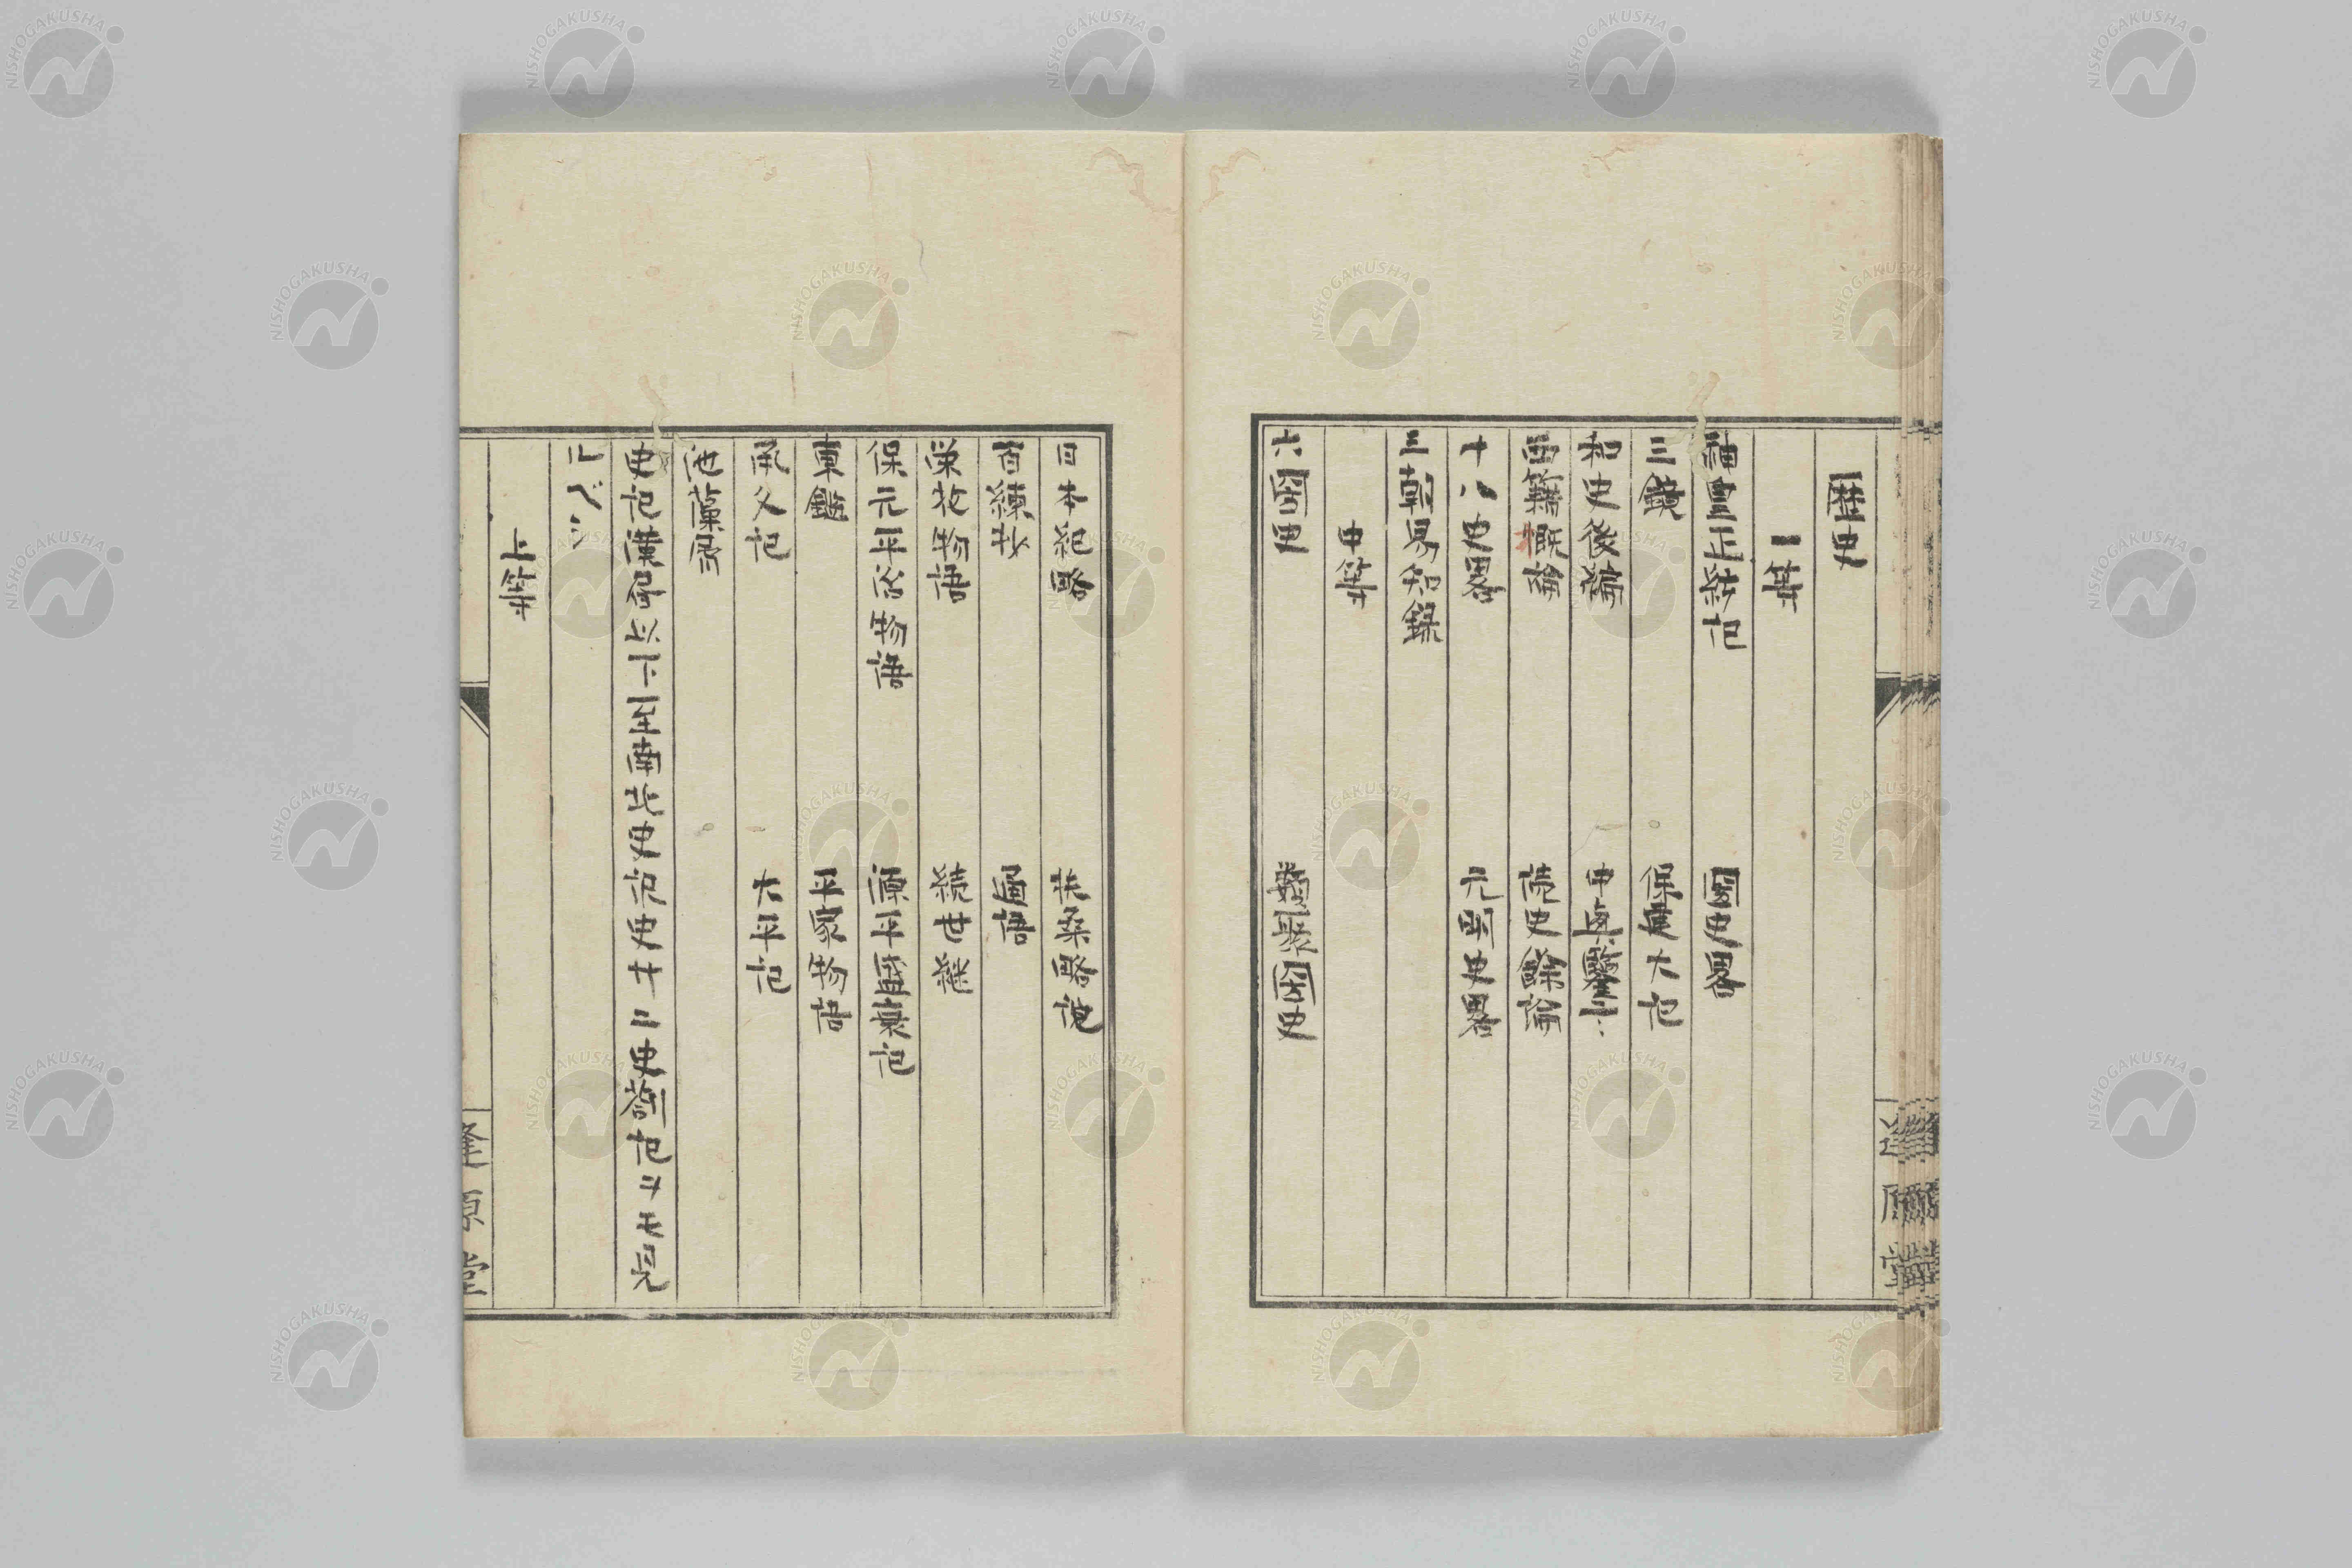 歴史
一等
神皇正統記 国史畧
三鏡 保建大記
和史後編 中興鑒言
西籍慨論 読史餘論
十八史畧 元明史畧
三朝易知録
中等
六国史 類聚国史
日本紀略 扶桑略記
百練抄 愚語
栄花物語 続世継
保元平治物語 源平盛衰記
東鑑 平家物語
承久記 太平記
池藁屑
史記漢書以下至南北史記史廿二史
上等
逢原堂
NISHOGAKUSHA